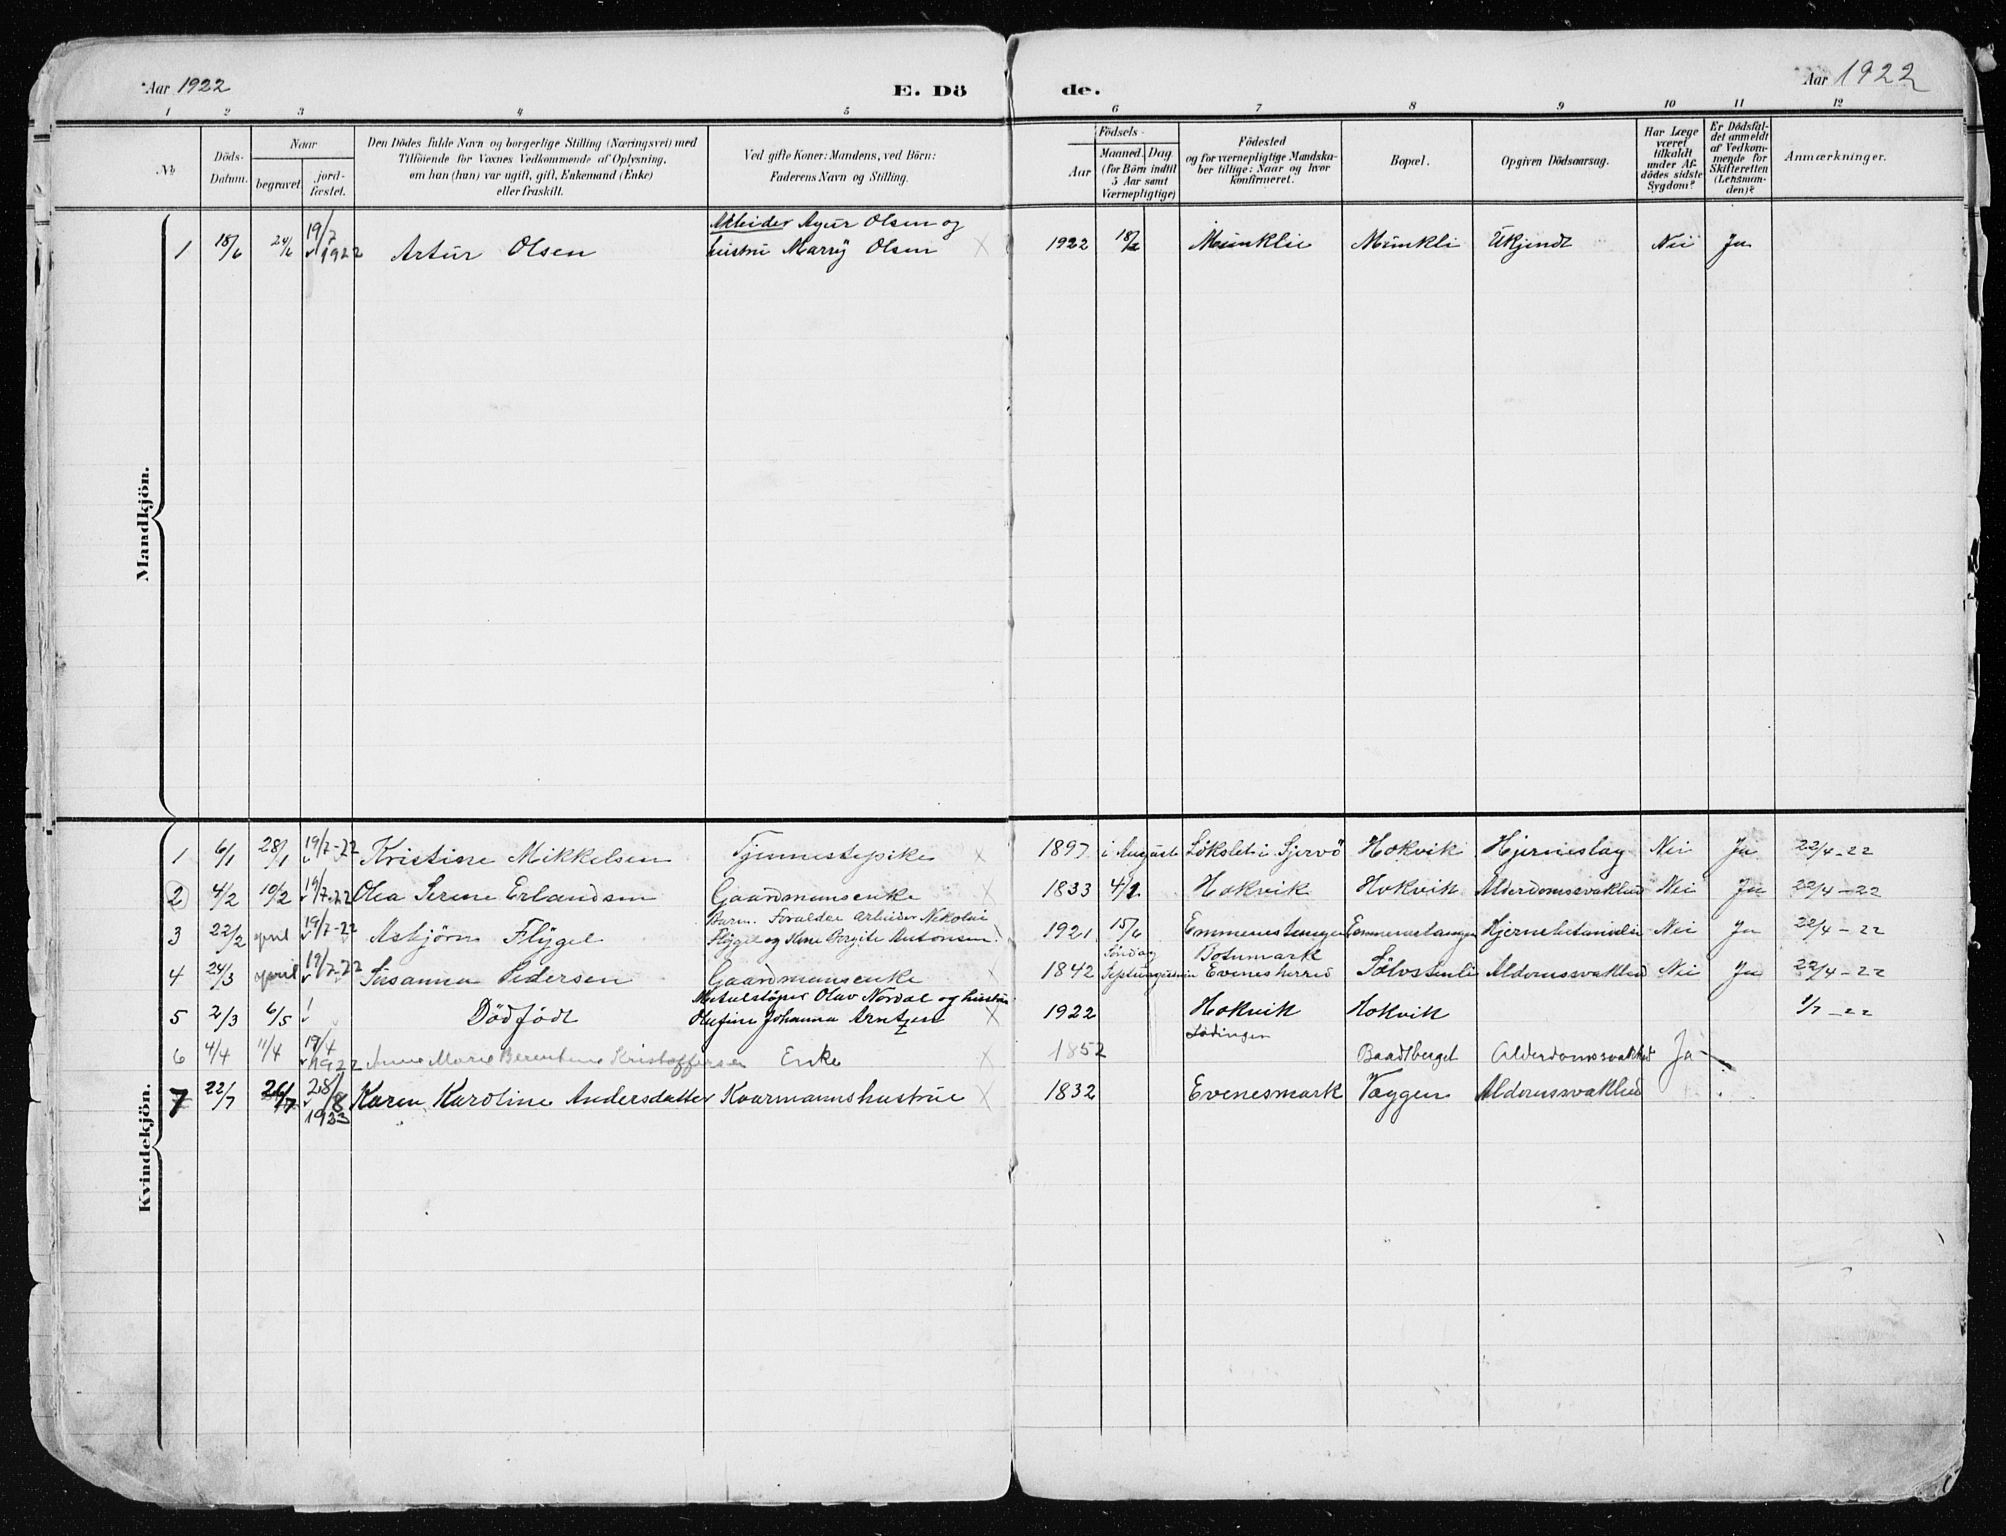 Aar 1922
E. Dö
de.
Aar 1922
1 2 3 4 5 6 7 8 9 10 11 12
No
Döds-
Datum.
Naar
begravet.
jord-
fæstet.
Den Dödes fulde Navn og borgerlige Stilling (Næringsvei) med
Tilföiende for Voxnes Vedkommende af Oplysning,
om han (hun) var ugift, gift, Enkemand (Enke)
eller fraskilt.
Ved gifte Koner: Mandens, ved Börn:
Faderens Navn og Stilling.
Födsels-
Aar
Maaned. Dag
(for Börn indtil
5 Aar samt
Værnepligtige)
Födested
og for værnepligtige Mandska-
ber tillige: Naar og hvor
konfirmeret.
Bopæl.
Opgiven Dödsaarsag.
Har Læge
været
tilkaldt
under Af-
dödes sidste
Sygdom?
Er Dödsfal-
det anmeldt
af Vedkom-
mende for
Skifteretten
(Lensman-
den)?
Anmærkninger.
Mandkjön.
Arbeider Olsen og
1 18/6 24/6 19/7 1922 Artur Olsen hustru Marry Olsen 1922 18/2 Munklie Munkli Ukjendt Nei Ja
Kvindekjön.
1 6/1 28/1 19/7-22 Kristine Mikkelsen Tjennestepike 1897 i August i Hokvik Hjerneslag Nei Ja 22/4-22
2 4/2 19/2 19/7-22 Olea Serine Erlandsen Gaardmansenke 1833 4/2 Hokvik Hokvik Alderdomssvakhed Nei Ja 22/4-22
Barn. Foraldre arbeider Nikolai
3 22/2 april 19/7-22 Asbjörn Flygel Flygel og Kone Bergite Antonsen 1921 15/6 Emmenestangen Emmenestangen Nei Ja 22/4-22
Söndag Botnmark
4 24/3 april 19/7-22 Susanna Pedersen Gaardmansenke 1842 Evenesherred Nei Ja 22/4-22
Olav Nordal og hustru
5 2/3 6/5 Dödfödt Olufine Johanna Arntzen 1922 Hokvik Hokvik 1/7-22
Lödingen
6 4/4 11/4 19/4 1922 Anne Marie Berentine Kristoffersen Enke 1852 Baadsberget Alderdomssvakhed Ja
7 22/7 26/7 28/8 1923 Karen Karoline Andersdatter Kaarmannshustrue 1832 Evenesmark Taggen